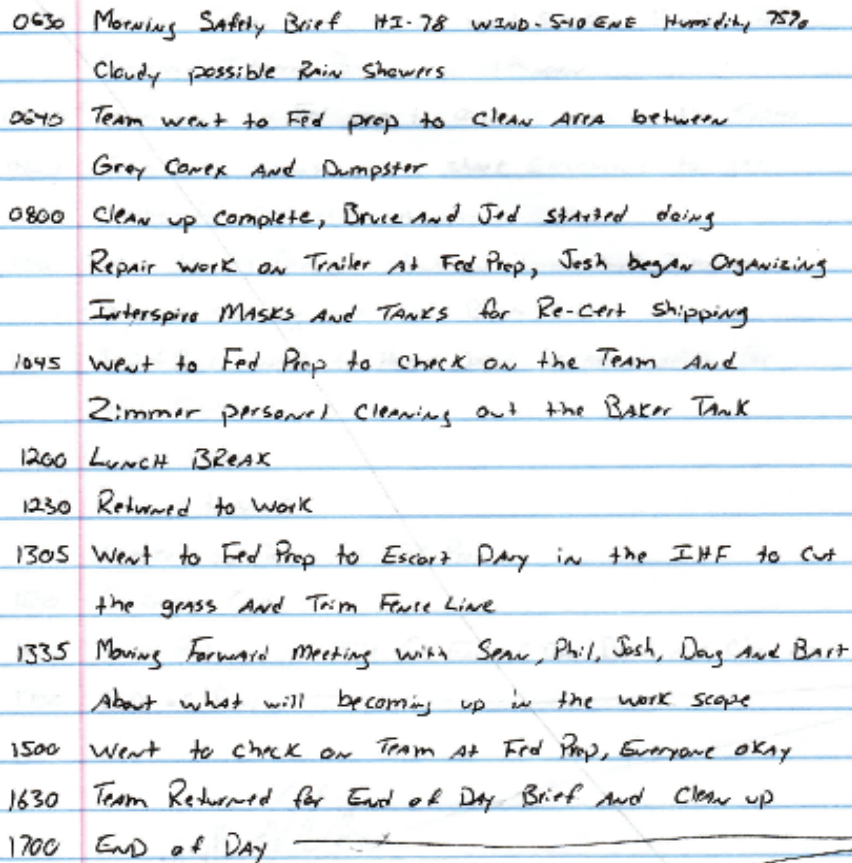 0630 Morning Safety Brief HI-78 WIND-5-10 ENE Humidity 75%
Cloudy possible Rain Showers
0640 Team went to Fed prop to clean Area between
Grey Conex And Dumpster
0800 Clean up complete, Bruce And Jed started doing
Repair work on Trailer At Fed Prop, Josh began Organizing
Interspiro Masks And Tanks for Re-Cert Shipping
1045 Went to Fed Prop to check on the Team And
Zimmer personel Cleaning out the Baker Tank
1200 LUNCH BREAK
1230 Returned to Work
1305 Went to Fed Prop to Escort Davy in the IHF to cut
the grass And Trim Fence Line
1335 Moving Forward Meeting with Sean, Phil, Josh, Doug And Bart
About what will becoming up in the work scope
1500 Went to check on Team At Fed Prop, Everyone okay
1630 Team Returned for End of Day Brief And Clean up
1700 END of DAY